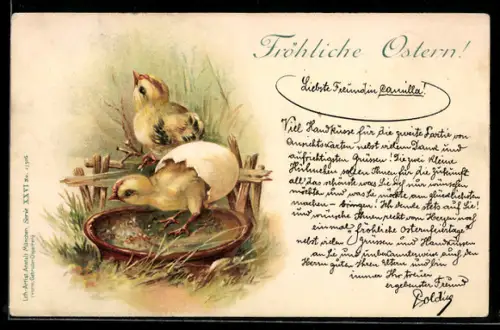 Fröhliche Ostern!
Liebste Freundin Camilla!
Viel Handküsse für die zweite Partie von
Ansichtskarten nebst vielem Dank und
aufrichtigsten Grüssen! Die zwei kleine
Hühnchen sollen Ihnen für die Zukunft
all' das schönste was Sie sich nur wünschen
möchten und was Sie möchte am glücklichsten
machen – bringen! Ich denke stets auf Sie!
und wünsche Ihnen recht vom Herzen noch
einmal fröhliche Osternfeiertage
nebst vielen Grüssen und Handküssen
an Sie und unbekannterweise auch den
Herrn guten Ihren Eltern und bin
immer Ihr treuer
ergebenster Freund
Lith.-Artist. Anstalt München Serie XXVI No.